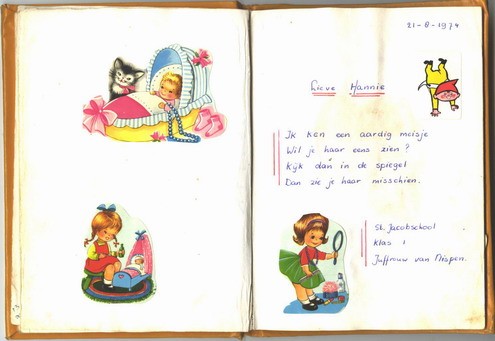 21-8-1974
Lieve Hannie
Ik ken een aardig meisje
Wil je haar eens zien?
Kijk dan in de spiegel
Dan zie je haar misschien.
St. Jacobschool
klas 1
Juffrouw van Nispen.